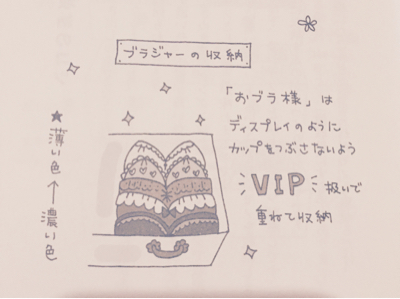 ブラジャーの収納
「おブラ様」は
ディスプレイのように
カップをつぶさないよう
VIP扱いで
重ねて収納
★薄い色←濃い色